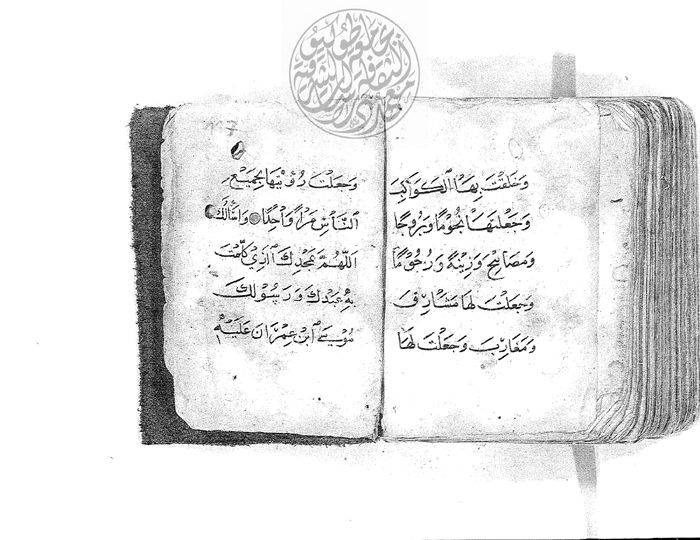 وَخَلَقْتَ بِهَا الْكَوَاكِبَ
وَجَعَلْتَهَا نُجُومًا وَبُرُوجًا
وَمَصَابِيحَ وَزِينَةً وَرُجُومًا
وَجَعَلْتَ لَهَا مَشَارِقَ
وَمَغَارِبَ وَجَعَلْتَ لَهَا
وَجَعَلْتَ رُؤْيَتَهَا لِجَمِيعِ
النَّاسِ مَرْأً وَاحِدًا وَاسْأَلُكَ
اَللّٰهُمَّ بِمَجْدِكَ الَّذِي كَلَّمْتَ
بِهِ عَبْدَكَ وَرَسُولَكَ
مُوسَى ابْنَ عِمْرَانَ عَلَيْهِ